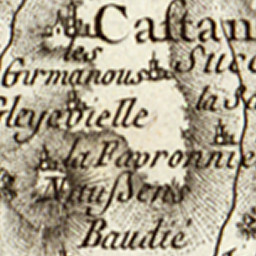 Caſtan
les Succ
Girmanous
la Sa
Gleyevielle
la Favronnie
Naußens
Baudié